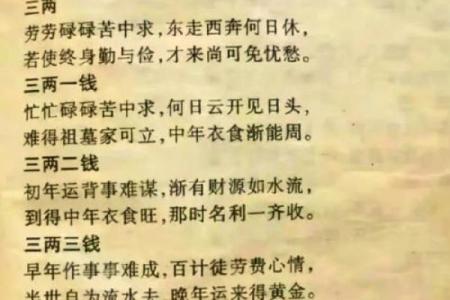 三两
劳劳碌碌苦中求,东走西奔何日休,
若使终身勤与俭,才来尚可免忧愁。
三两一钱
忙忙碌碌苦中求,何日云开见日头,
难得祖墓家可立,中年衣食渐能周。
三两二钱
初年运背事难谋,渐有财源如水流,
到得中年衣食旺,那时名利一齐收。
三两三钱
早年作事事难成,百计徒劳费心情,
半世自为流水去,晚年运来得黄金。